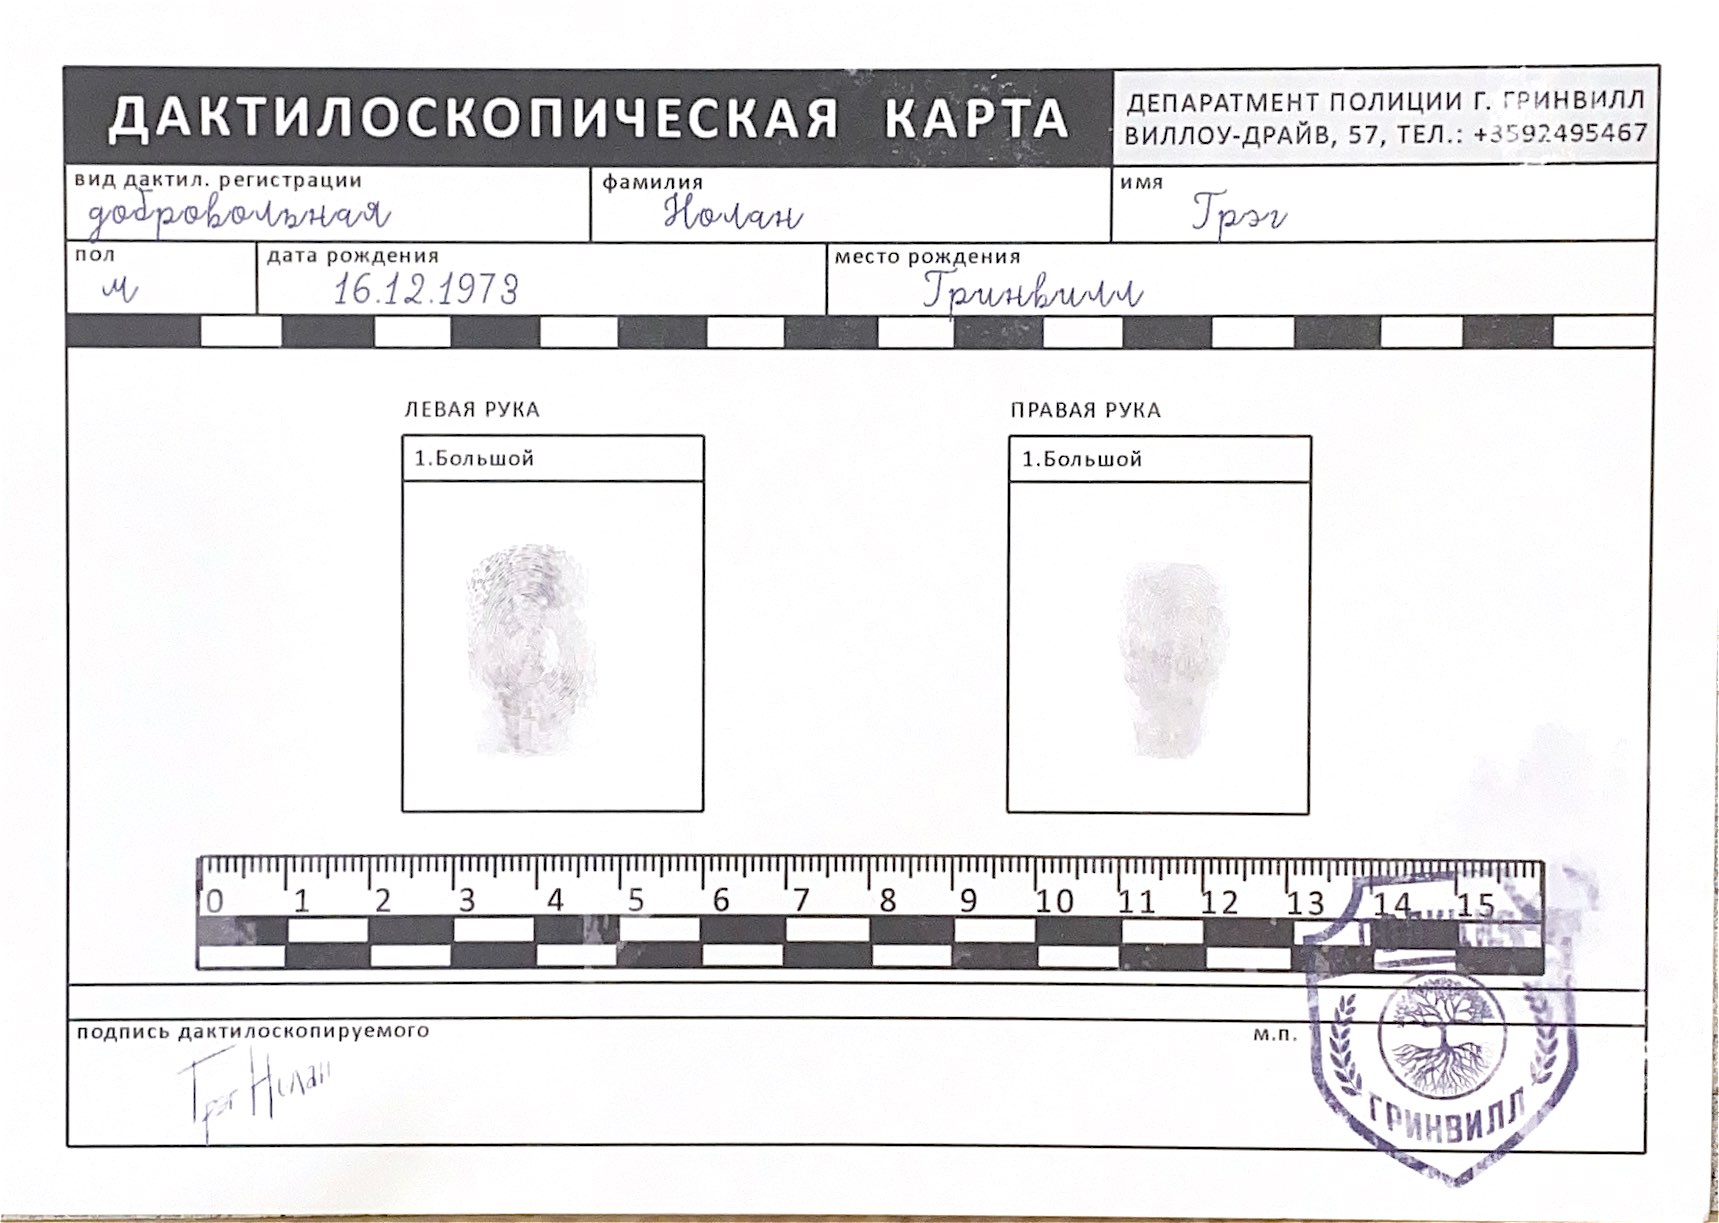 ДАКТИЛОСКОПИЧЕСКАЯ КАРТА
ДЕПАРАТМЕНТ ПОЛИЦИИ Г. ГРИНВИЛЛ
ВИЛЛОУ-ДРАЙВ, 57, ТЕЛ.: +3592495467
вид дактил. регистрации
добровольная
фамилия
Нолан
имя
Грэг
пол
м
дата рождения
16.12.1973
место рождения
Гринвилл
ЛЕВАЯ РУКА
ПРАВАЯ РУКА
1.Большой
1.Большой
0 1 2 3 4 5 6 7 8 9 10 11 12 13 14 15
подпись дактилоскопируемого
Грэг Нолан
м.п.
ГРИНВИЛЛ